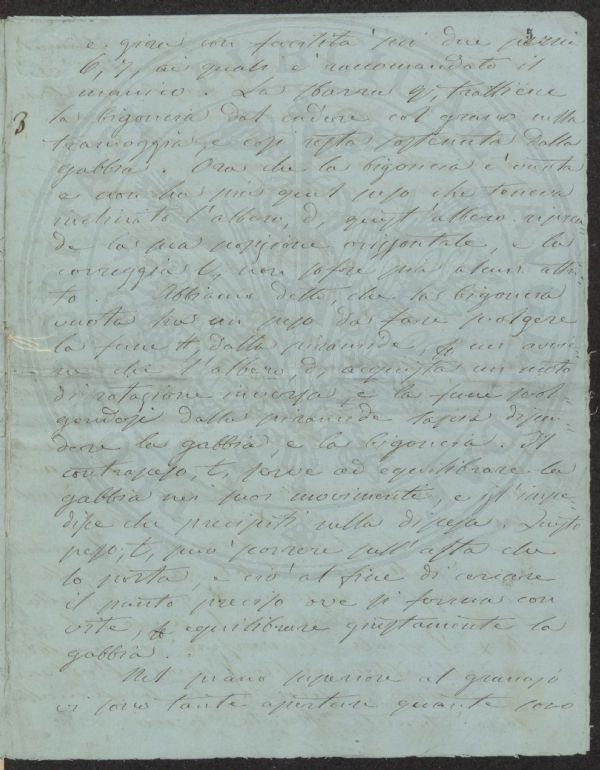 5
e gira con facilità sui due perni
6, 7, ai quali è raccomandato il
manico. La sbarra q, trattiene
3
la bigoncia dal cadere col grano nella
tramoggia, e così resta sostenuta dalla
gabbia. Ora che la bigoncia è vuota
e non ha più quel peso che teneva
inclinato l'albero, d, quest'albero ripren-
de la sua posizione orizzontale, e la
correggia non sofre più alcun attri-
to. Abbiamo detto che la bigoncia
vuota ha un peso da fare svolgere
la fune H, dalla piramide, ne avvie-
ne che l'albero d, acquista un moto
di rotazione inversa, e la fune svol-
gendosi dalla piramide lascia disen-
dere la gabbia, e la bigoncia. Il
contrapeso, t, serve ad equilibrare la
gabbia nei suoi movimenti, e l'impe-
disce che precipiti nella discesa. Questo
peso, t, può scorrere sull'asta che
lo porta, e ciò al fine di cercare
il punto preciso ove si ferma con
vite, equilibrare giustamente la
gabbia.
Nel piano superiore al granajo
vi sono tante aperture quante sono